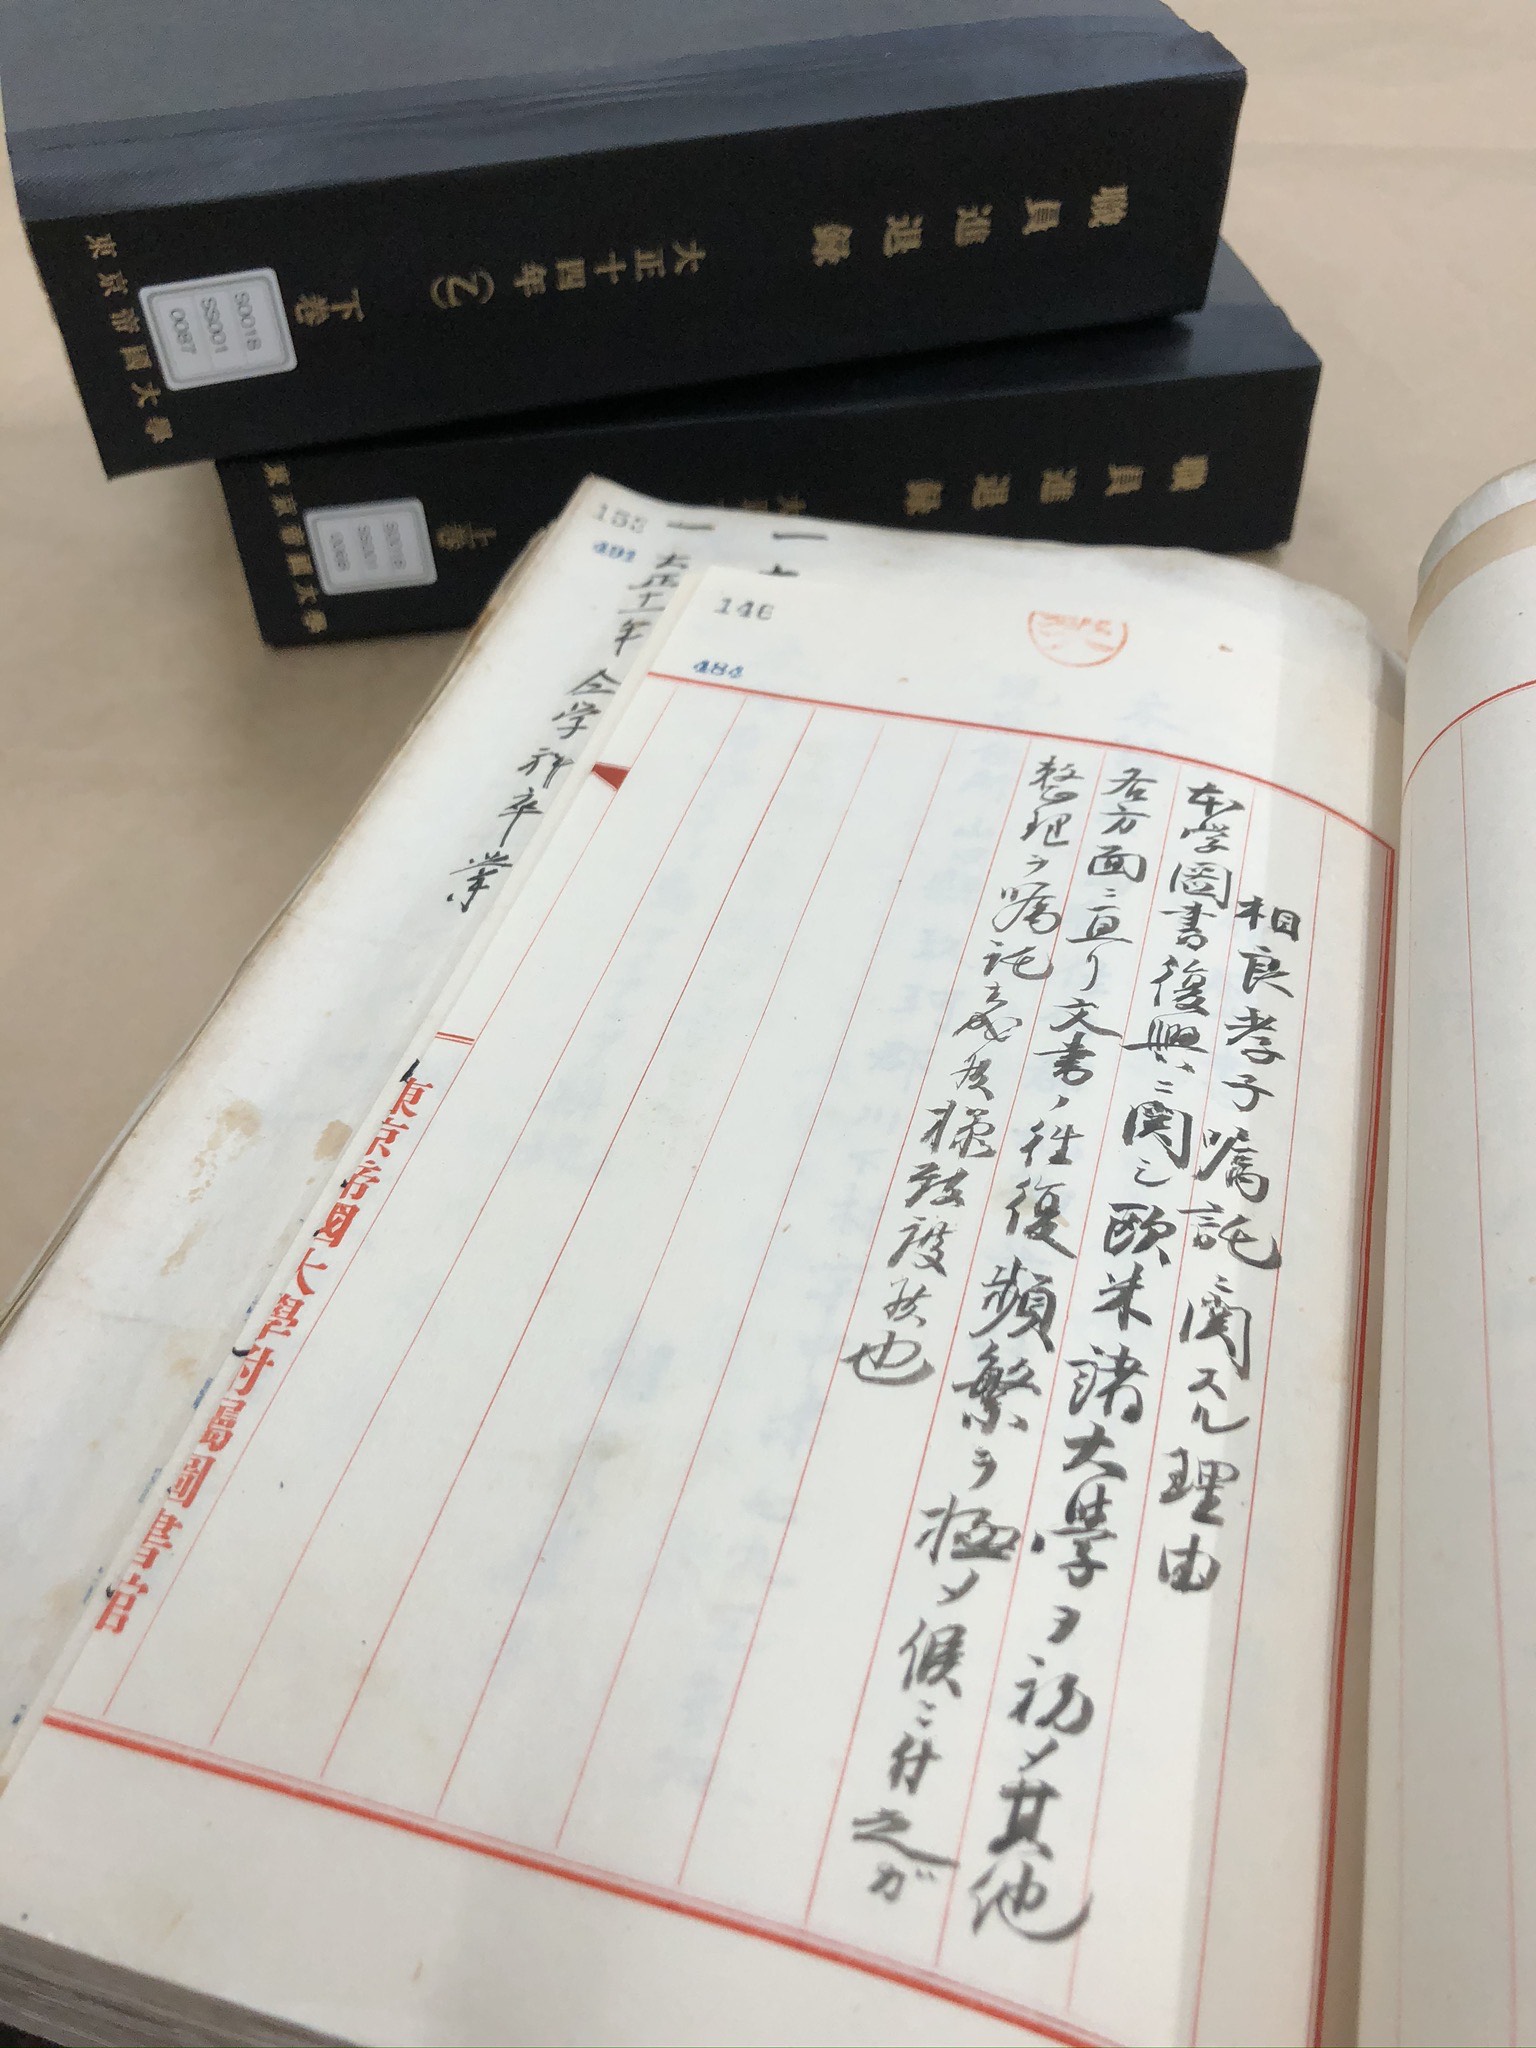 職員進退録
大正十四年(2)
下巻
東京帝國大學
S0018
SS001
0087
職員進退録
上巻
東京帝國大學
S0018
SS001
0086
155
491
大正十一年 仝学科卒業
146
484
相良孝子嘱託ニ関スル理由
本学圖書復興ニ関シ欧米諸大學ヲ初メ其他
各方面ニ亘リ文書ノ往復頻繁ヲ極メ候ニ付之ガ
整理ヲ嘱託致度候也
東京帝國大學附属圖書館